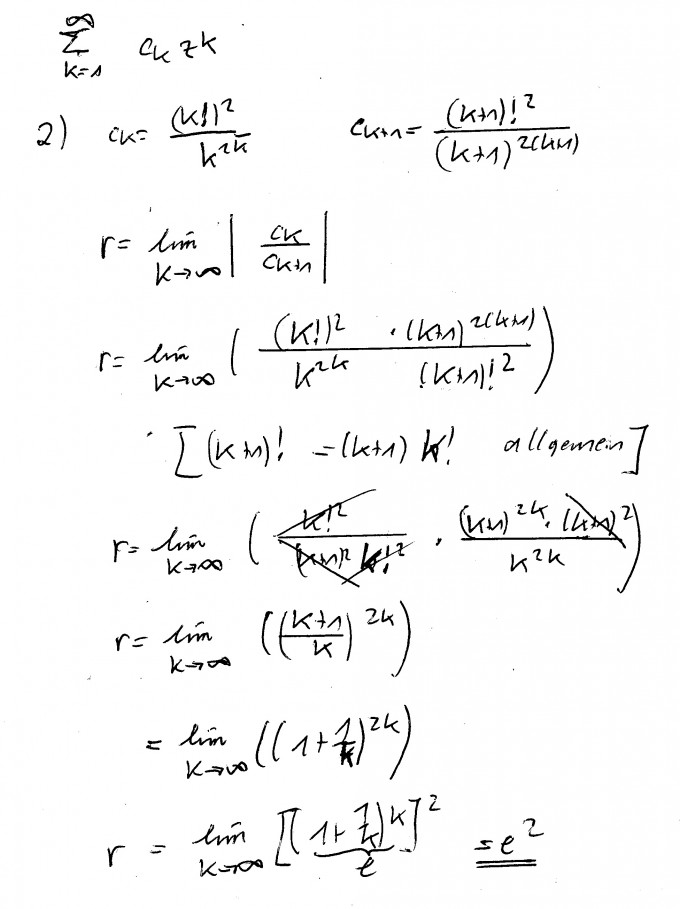 ∞
∑ c_k z^k
k=1
2) c_k = (k!)^2 / k^{2k}    c_{k+1} = (k+1)!^2 / (k+1)^{2(k+1)}
r = lim_{k→∞} | c_k / c_{k+1} |
r = lim_{k→∞} ( (k!)^2 · (k+1)^{2(k+1)} / k^{2k} (k+1)!^2 )
[ (k+1)! = (k+1) k! allgemein ]
r = lim_{k→∞} ( k!^2 / (k+1)^2 k!^2 · (k+1)^{2k} · (k+1)^2 / k^{2k} )
r = lim_{k→∞} ( ( (k+1) / k )^{2k} )
= lim_{k→∞} ( ( 1 + 1/k )^{2k} )
r = lim_{k→∞} [ ( 1 + 1/k )^k ]^2 = e^2
e